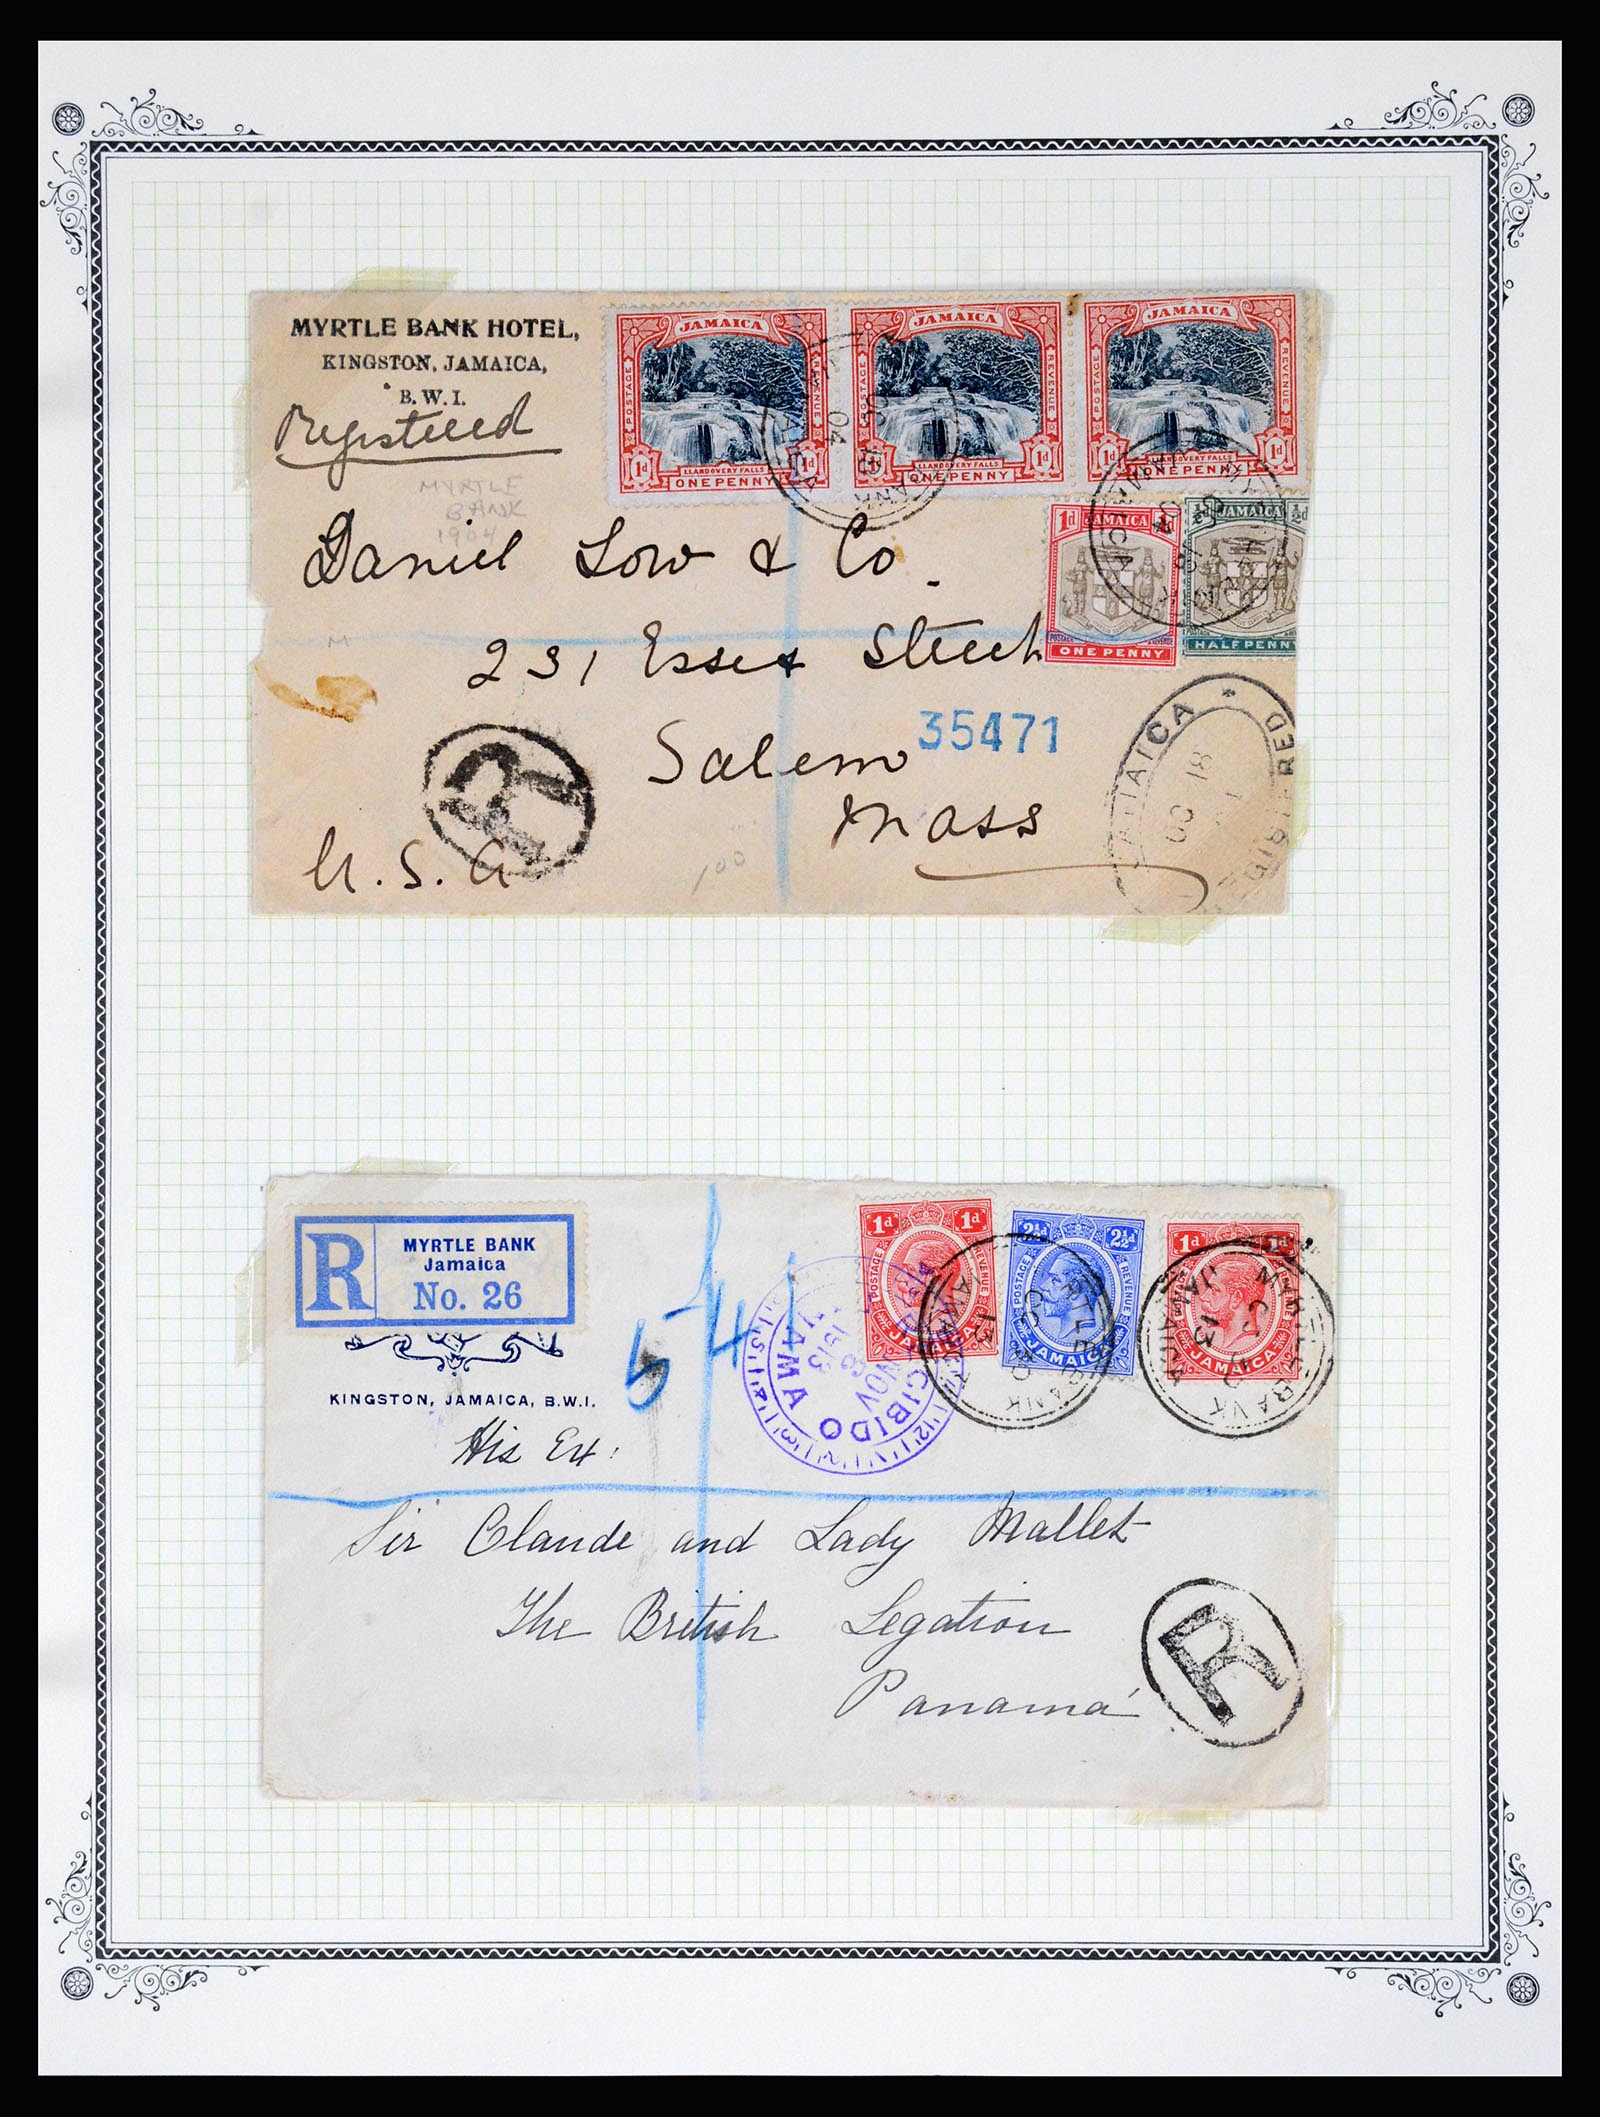 MYRTLE BANK HOTEL,
KINGSTON, JAMAICA,
B.W.I.
Registered
MYRTLE
BANK
1904
JAMAICA
POSTAGE
REVENUE
1d
LLANDOVERY FALLS
1d
ONE PENNY
JAMAICA
REVENUE
1d
LLANDOVERY FALLS
1d
ONE PENNY
JAMAICA
POSTAGE
REVENUE
1d
LLANDOVERY FALLS
1d
ONE PENNY
1d JAMAICA 1d
POSTAGE & REVENUE
ONE PENNY
½d JAMAICA ½d
POSTAGE
HALF PENNY
Daniel Low & Co.
M
231 Essex Street
35471
Salem
Mass
U.S.A.
R
100
JAMAICA *
OC 18
REGISTERED
R
MYRTLE BANK
Jamaica
No. 26
KINGSTON, JAMAICA, B.W.I.
1d 1d
POSTAGE
REVENUE
JAMAICA
2½d 2½d
POSTAGE
REVENUE
JAMAICA
1d 1d
JAMAICA
MYRTLE BANK
JAMAICA
OC 30
13
MYRTLE BANK
JAMAICA
13
RECIBIDO
NOV
3
1913
His Ex:
Sir Claude and Lady Mallet
The British Legation
Panamá
R